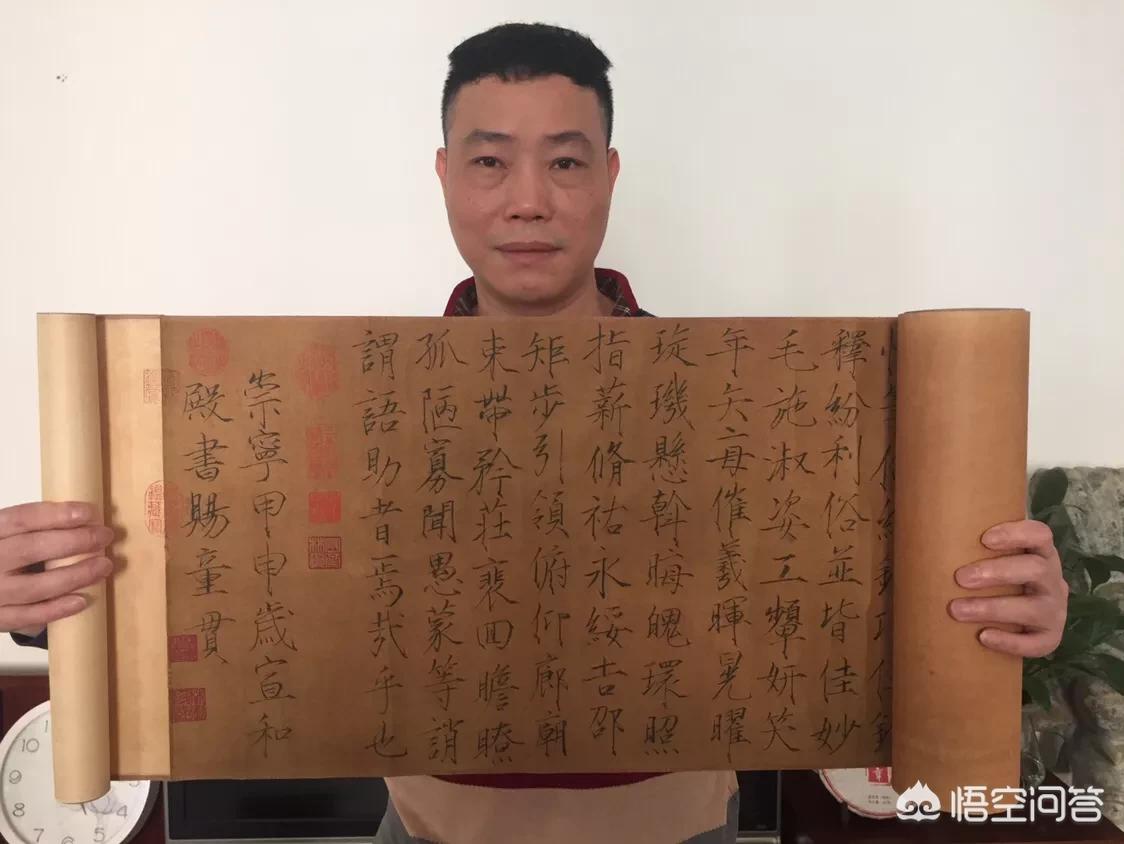 釋紛利俗並皆佳妙
毛施淑姿工顰妍笑
年矢每催羲暉晃曜
琁璣懸斡晦魄環照
指薪脩祜永綏吉邵
矩步引領俯仰廊廟
束帶矜莊裴回瞻瞭
孤陋寡聞愚蒙等誚
謂語助者焉哉乎也
崇寧甲申歲宣和
殿書賜童貫
悟空问答